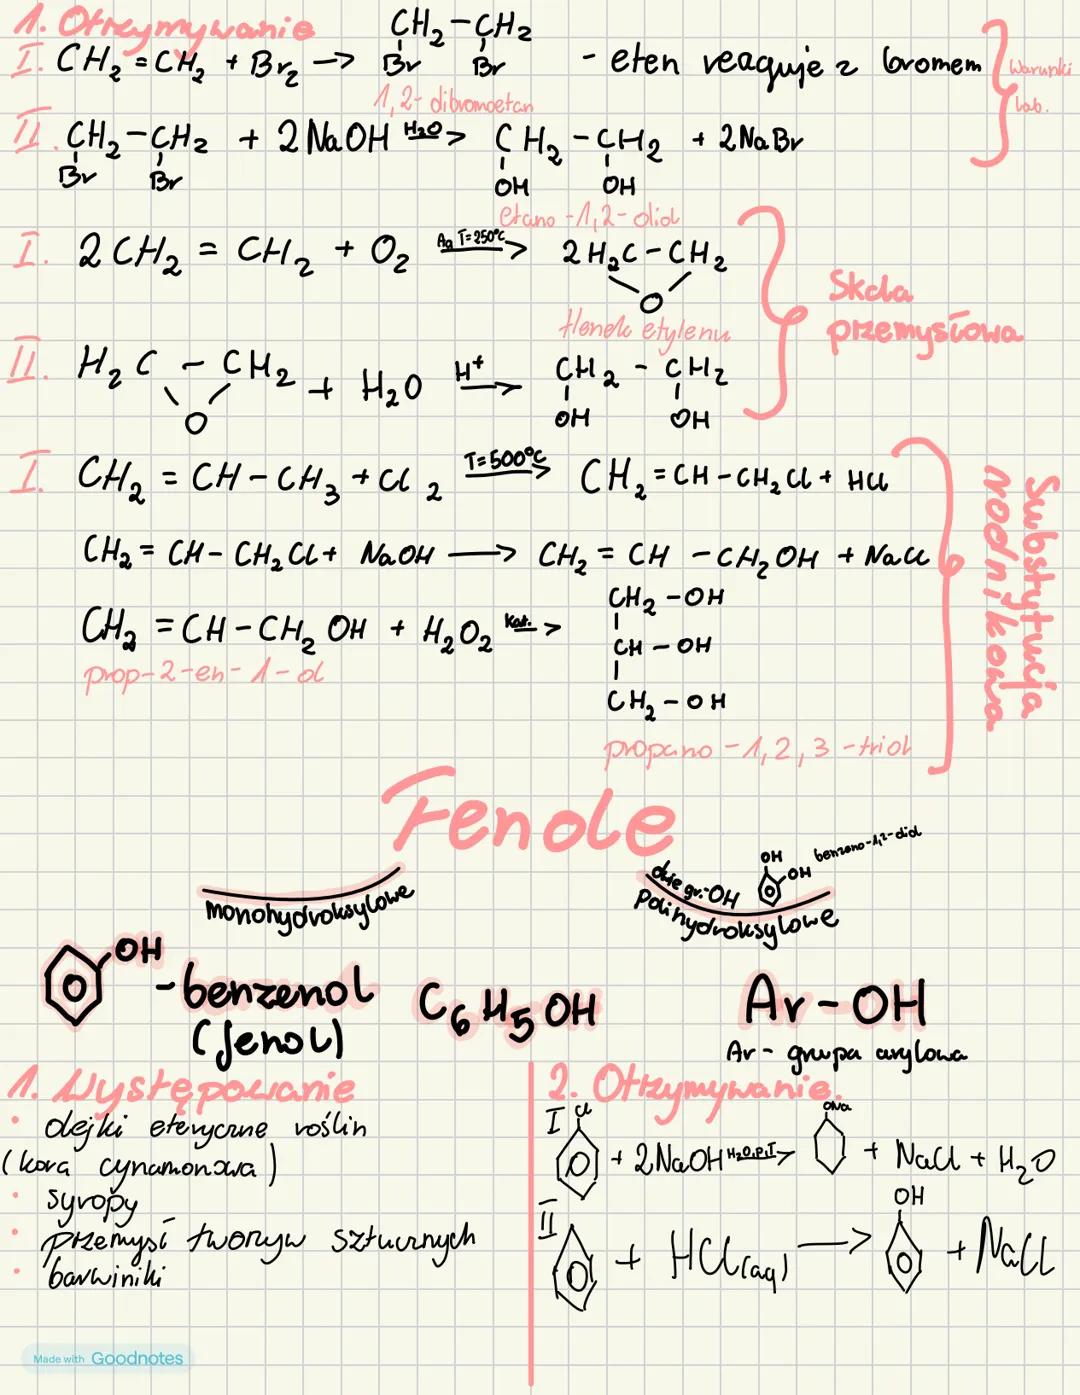 1. Otrzymywanie
I. CH₂=CH₂ + Br₂ → CH₂-CH₂ - eten reaguje z bromem
Br Br
1,2-dibromoetan
Warunki lab.
II. CH₂-CH₂ + 2NaOH H₂O> CH₂-CH₂ + 2NaBr
Br Br OH OH
etano-1,2-diol
I. 2CH₂ = CH₂ + O₂ Ag T=250°C → 2H₂C-CH₂
O
tlenek etylenu
Skala przemysłowa
II. H₂C - CH₂ + H₂O H⁺ → CH₂ - CH₂
O OH OH
I. CH₂ = CH-CH₃ + Cl₂ T=500°C → CH₂=CH-CH₂Cl + HCl
CH₂ = CH-CH₂Cl + NaOH → CH₂ = CH-CH₂OH + NaCl
CH₂ = CH-CH₂OH + H₂O₂ kat. > CH₂-OH
CH-OH
CH₂-OH
prop-2-en-1-ol
propano-1,2,3-triol
Substytucja
rodnikowa
Fenole
monohydroksylowe
dwie gr.-OH
OH
OH
benzeno-1,2-diol
polihydroksylowe
OH
-benzenol
(fenol)
C₆H₅OH
Ar-OH
Ar - grupa arylowa
1. Występowanie
• olejki eteryczne roślin
(kora cynamonowa)
• syropy
• przemysł tworzyw sztucznych
• barwiniki
2. Otrzymywanie.
I Cl + 2NaOH H₂O,p,T > ONa + NaCl + H₂O
II + HCl(aq) → OH + NaCl
Made with Goodnotes